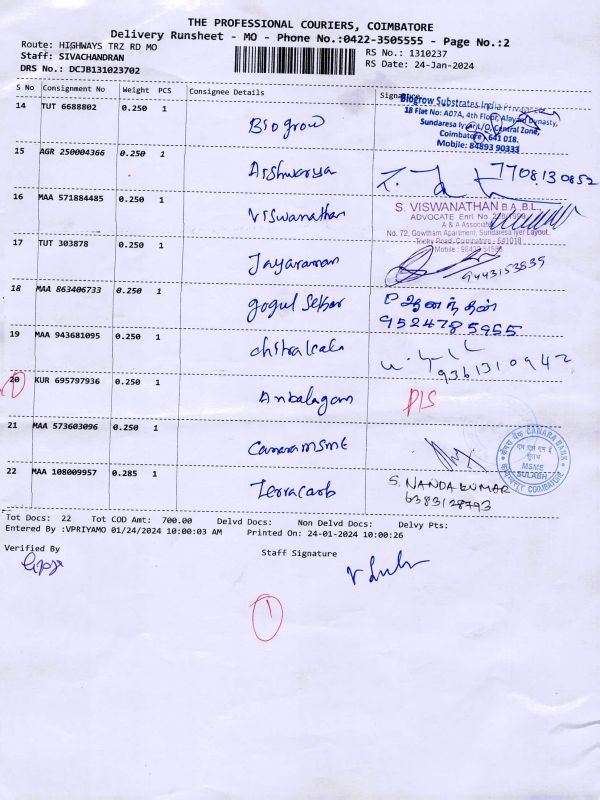 THE PROFESSIONAL COURIERS, COIMBATORE
Delivery Runsheet - MO - Phone No.:0422-3505555 - Page No.:2
Route: HIGHWAYS TRZ RD MO
RS No.: 1310237
Staff: SIVACHANDRAN
RS Date: 24-Jan-2024
DRS No.: DCJB131023702
S No Consignment No Weight PCS Consignee Details Signature
14 TUT 6688802 0.250 1 Biogrow
Biogrow Substrates India Private
18 Flat No: A07A, 4th Floor, Alayam Dynasty,
Sundaresa Iyer L/O, Central Zone,
Coimbatore - 641 018.
Mobile: 84893 90333
15 AGR 250004366 0.250 1 Aishwarya 7708130852
16 MAA 571884485 0.250 1 Viswanathan
S. VISWANATHAN B.A.,B.L.,
ADVOCATE Enrl. No.
A & A Associates
No. 72, Gowtham Apartment, Sundaresa Iyer Layout,
Trichy Road, Coimbatore - 641018
Mobile :
17 TUT 303878 0.250 1 Jayaraman 9443153539
18 MAA 863406733 0.250 1 gogul Sekar
9524785955
19 MAA 943681095 0.250 1 chitralekala
9361310942
20 KUR 695797936 0.250 1 Anbalagan PIS
21 MAA 573603096 0.250 1 Canara MSME
CANARA BANK
MSME
SULABH
COIMBATORE
22 MAA 108009957 0.285 1 Terracarb
S. NANDA KUMAR
6383128793
Tot Docs: 22 Tot COD Amt: 700.00 Delvd Docs: Non Delvd Docs: Delvy Pts:
Entered By :VPRIYAMO 01/24/2024 10:00:03 AM Printed On: 24-01-2024 10:00:26
Verified By
Staff Signature
1